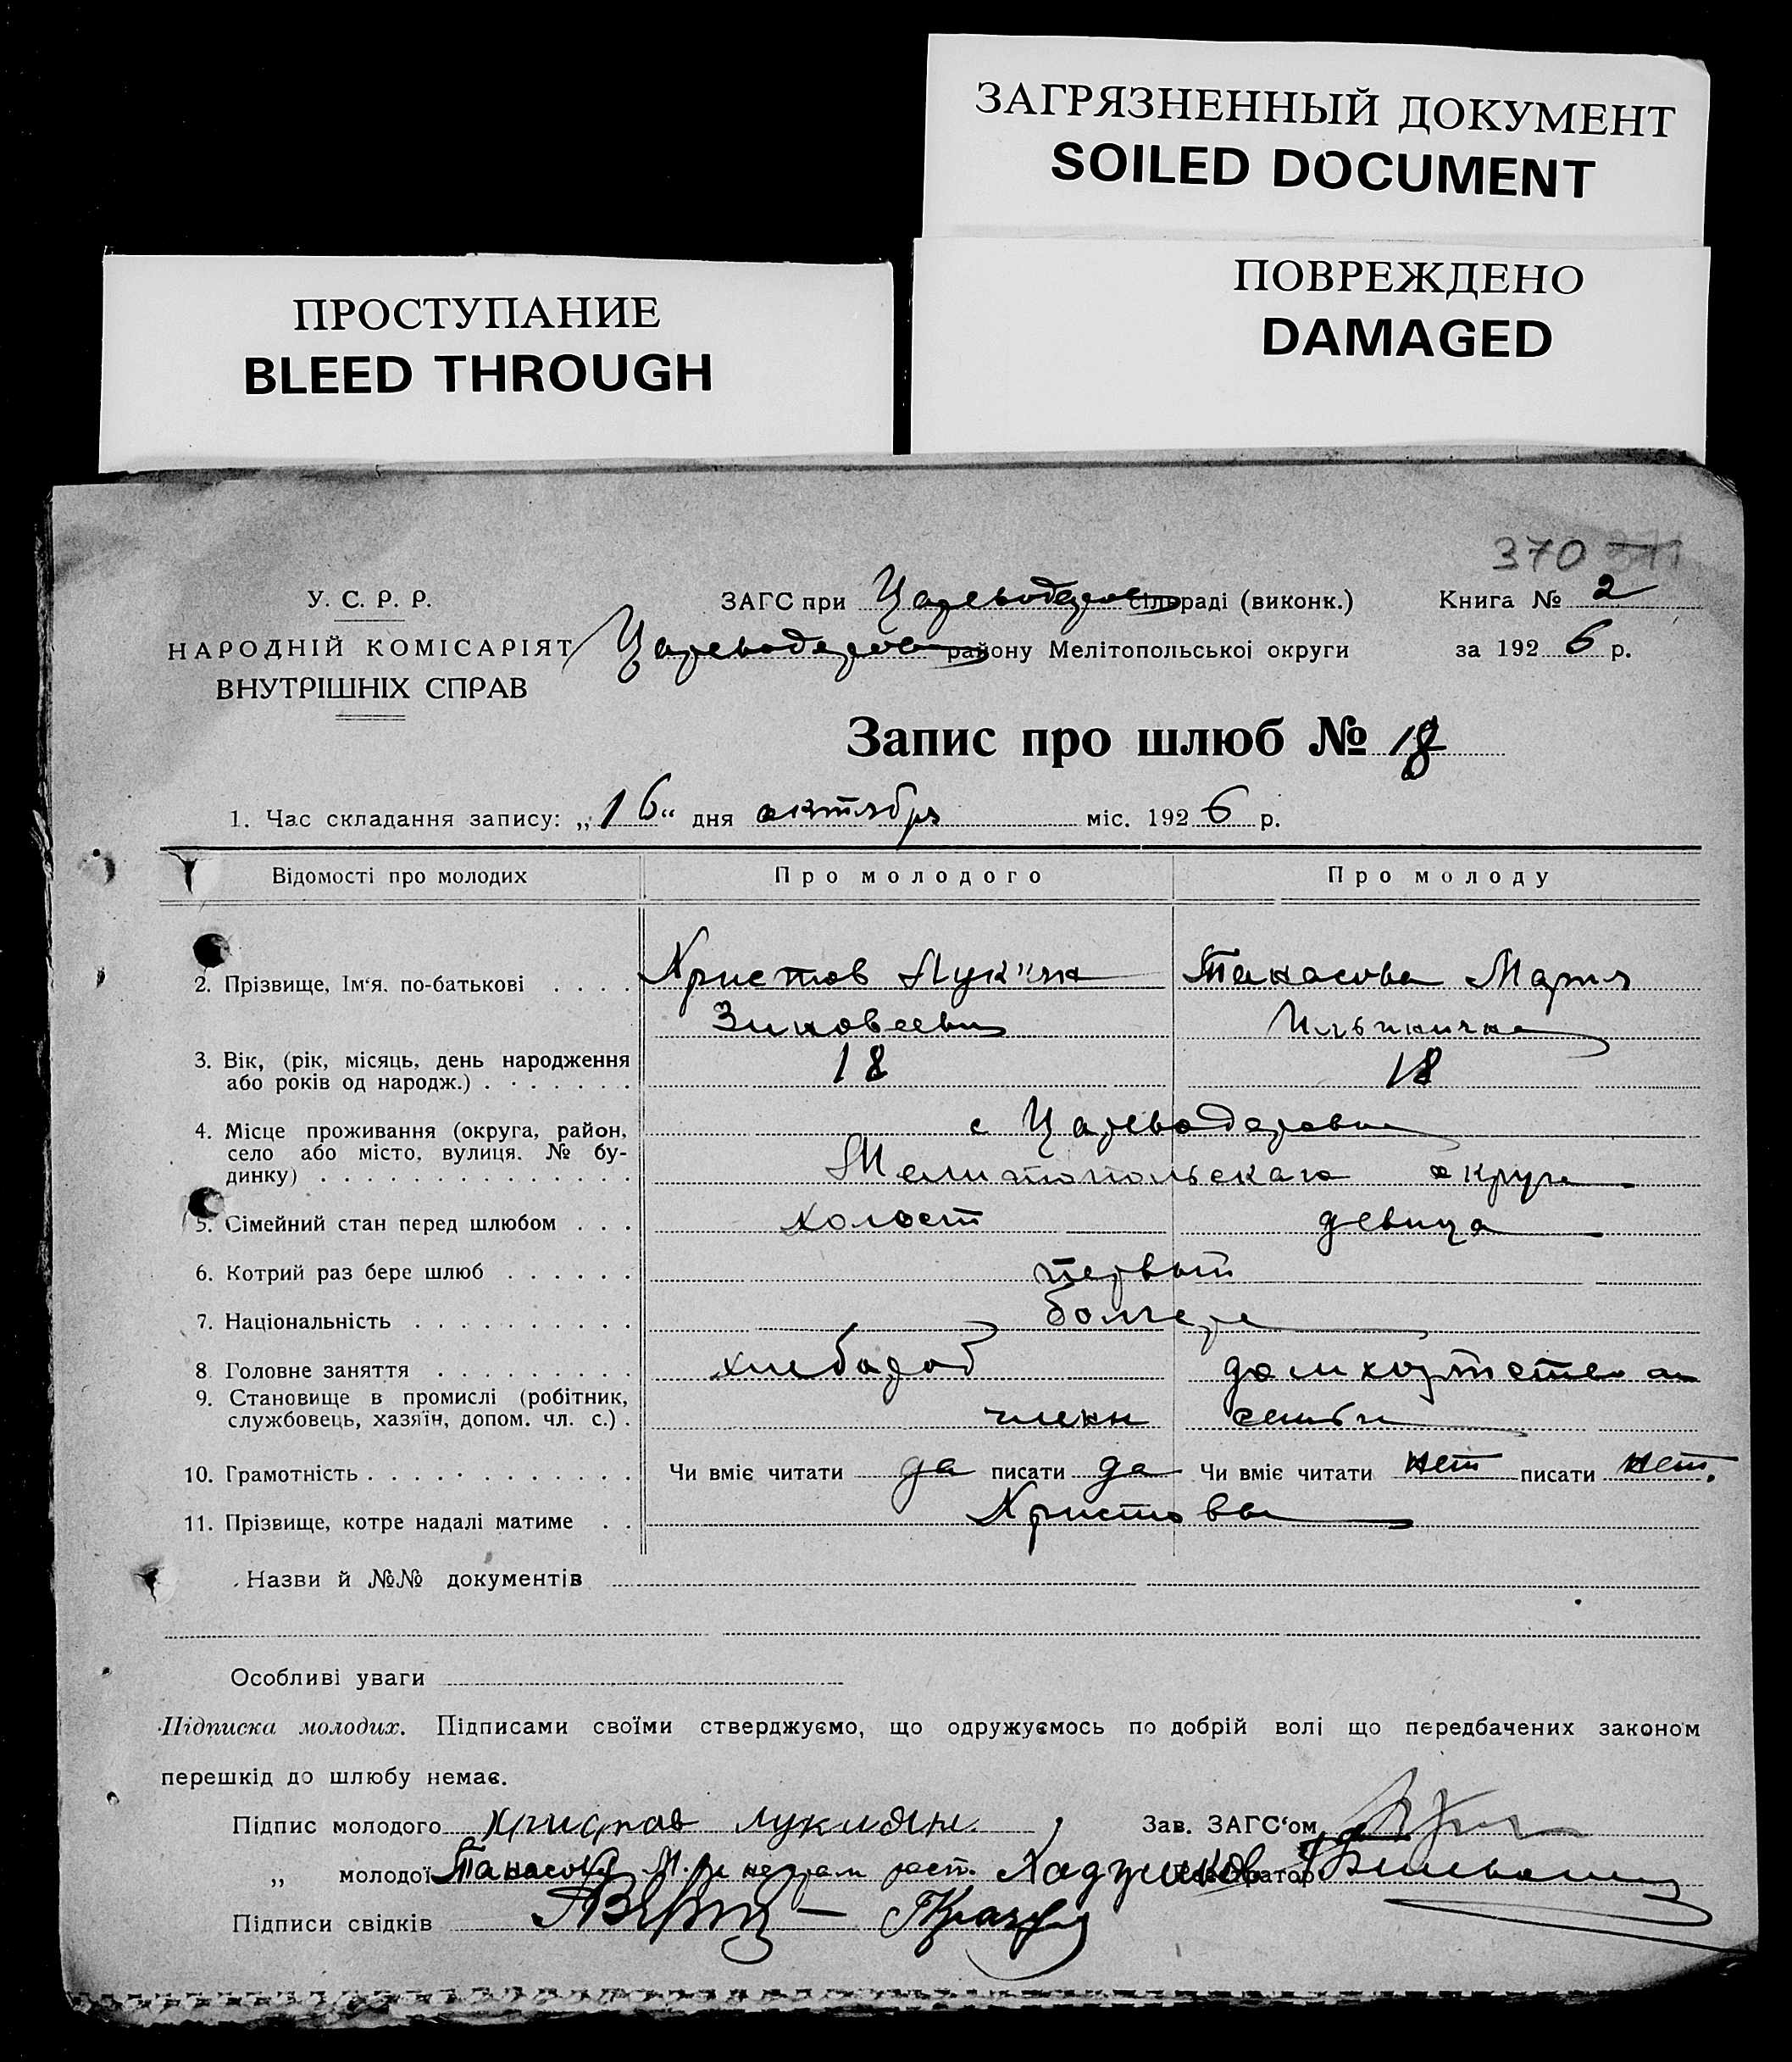 ЗАГРЯЗНЕННЫЙ ДОКУМЕНТ
SOILED DOCUMENT
ПОВРЕЖДЕНО
DAMAGED
ПРОСТУПАНИЕ
BLEED THROUGH
370 371
У. С. Р. Р.
НАРОДНІЙ КОМІСАРІЯТ
ВНУТРІШНІХ СПРАВ
ЗАГС при Цареводаров сільраді (виконк.) Книга № 2
Цареводаров району Мелітопольської округи за 1926 р.
Запис про шлюб № 18
1. Час складання запису: „16“ дня октября міс. 1926 р.
Відомості про молодих Про молодого Про молоду
2. Прізвище, Ім‘я, по-батькові . . . . Христов Лукиян Танасова Мария
Зиновеевич Ильинична
3. Вік, (рік, місяць, день народження
або років од народж.) . . . . . . . 18 18
4. Місце проживання (округа, район,
село або місто, вулиця. № бу-
динку) . . . . . . . . . . . . . .
с Цареводаровка
Мелитопольскаго округа
5. Сімейний стан перед шлюбом . . . холост девица
6. Котрий раз бере шлюб . . . . . . первый
7. Національність . . . . . . . . . . болгаре
8. Головне заняття . . . . . . . . . хлебороб
9. Становище в промислі (робітник,
службовець, хазяїн, допом. чл. с.) . члени семьи
10. Грамотність . . . . . . . . . . . . Чи вміє читати да писати да Чи вміє читати нет писати нет.
11. Прізвище, котре надалі матиме . . Христовы
Назви й №№ документів
Особливі уваги
Підписка молодих. Підписами своїми стверджуємо, що одружуємось по добрій волі що передбачених законом
перешкід до шлюбу немає.
Підпис молодого Христов Лукиян Зав. ЗАГС‘ом
„ молодої Танасова М. Хаджинов
Підписи свідків